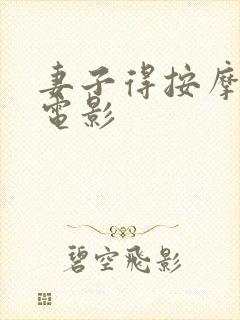 妻子得按摩
電影
碧空飛影